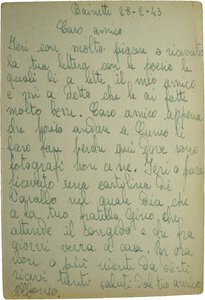 Bainetti 28-2-43
Caro amico
Ieri con molto piacere o ricevuto
la tua lettera con le poesie le
quali li a lete il mio amico
e mi a detto che le ai fatti
molto bene. Caro amico appena
che posso andare a Cuneo li
faro fare perchè qui dove sono
fotografi non ce ne. Ieri o pure
ricevuto una cartolina di
nel quale dice che
ce la tuo fratello Gino, che
attende il congedo e que fra
giorni verra a casa. Per ora
non o più niente da dirti
ricevi tanti saluti dal tuo amico
Alfonso